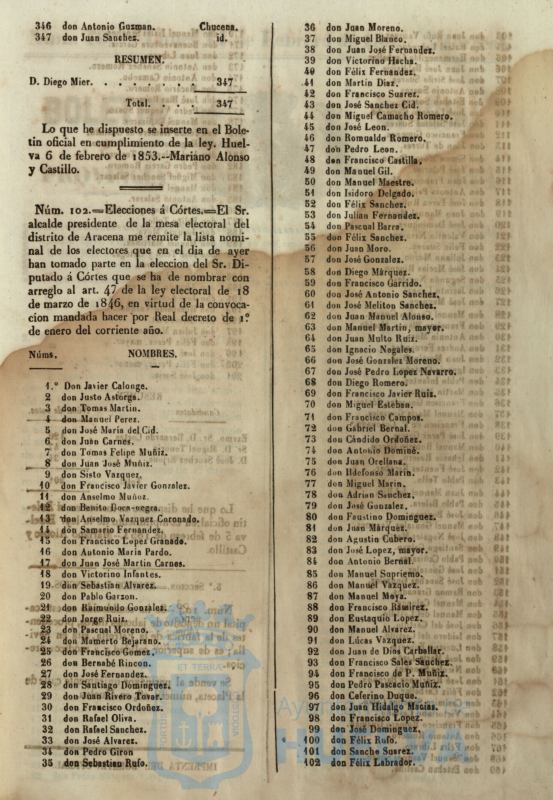 346 don Antonio Guzman. Chucena.
347 don Juan Sanchez. id.
RESUMEN.
D. Diego Mier. . . . . 347
Total. . . 347
Lo que he dispuesto se inserte en el Bole-
tin oficial en cumplimiento de la ley. Huel-
va 6 de febrero de 1853.--Mariano Alonso
y Castillo.
Núm. 102.=Elecciones á Córtes.=El Sr.
alcalde presidente de la mesa electoral del
distrito de Aracena me remite la lista nomi-
nal de los electores que en el dia de ayer
han tomado parte en la eleccion del Sr. Di-
putado á Córtes que se ha de nombrar con
arreglo al art. 47 de la ley electoral de 18
de marzo de 1846, en virtud de la convoca-
cion mandada hacer por Real decreto de 1.º
de enero del corriente año.
Núms. NOMBRES.
1.º Don Javier Calonge.
2 don Justo Astorga.
3 don Tomas Martin.
4 don Manuel Perez.
5 don José Maria del Cid.
6 don Juan Carnes.
7 don Tomas Felipe Muñiz.
8 don Juan José Muñiz.
9 don Sisto Vazquez.
10 don Francisco Javier Gonzalez.
11 don Anselmo Muñoz.
12 don Benito Boca-negra.
13 don Anselmo Vazquez Coronado.
14 don Samario Fernandez.
15 don Francisco Lopez Granado.
16 don Antonio Maria Pardo.
17 don Juan José Martin Carnes.
18 don Victorino Infantes.
19 don Sebastian Alvarez.
20 don Pablo Garzon.
21 don Raimundo Gonzalez.
22 don Jorge Ruiz.
23 don Pascual Moreno.
24 don Mamerto Bejarano.
25 don Francisco Gomez.
26 don Bernabé Rincon.
27 don José Fernandez.
28 don Santiago Dominguez.
29 don Juan Rivero Tovar.
30 don Francisco Ordoñez.
31 don Rafael Oliva.
32 don Rafael Sanchez.
33 don José Alvarez.
34 don Pedro Giron
35 don Sebastian Rufo.
36 don Juan Moreno.
37 don Miguel Blanco.
38 don Juan José Fernandez.
39 don Victorino Hacha.
40 don Félix Fernandez.
41 don Martin Diaz.
42 don Francisco Suarez.
43 don José Sanchez Cid.
44 don Miguel Camacho Romero.
45 don José Leon.
46 don Romualdo Romero.
47 don Pedro Leon.
48 don Francisco Castilla.
49 don Manuel Gil.
50 don Manuel Maestre.
51 don Isidoro Delgado.
52 don Félix Sanchez.
53 don Julian Fernandez.
54 don Pascual Barra.
55 don Félix Sanchez.
56 don Juan Moro.
57 don José Gonzalez.
58 don Diego Márquez.
59 don Francisco Garrido.
60 don José Antonio Sanchez.
61 don José Meliton Sanchez.
62 don Juan Manuel Alonso.
63 don Manuel Martin, mayor.
64 don Juan Multo Ruiz.
65 don Ignacio Nogales.
66 don José Gonzalez Moreno.
67 don José Pedro Lopez Navarro.
68 don Diego Romero.
69 don Francisco Javier Ruiz.
70 don Miguel Esteban.
71 don Francisco Campos.
72 don Gabriel Bernal.
73 don Cándido Ordoñez.
74 don Antonio Dominé.
75 don Juan Orellana.
76 don Ildefonso Marin.
77 don Miguel Marin.
78 don Adrian Sanchez.
79 don José Gonzalez.
80 don Faustino Dominguez.
81 don Juan Márquez.
82 don Agustin Cubero.
83 don José Lopez, mayor.
84 don Antonio Bernal.
85 don Manuel Supriemo.
86 don Manuel Vazquez.
87 don Manuel Moya.
88 don Francisco Ramirez.
89 don Eustaquio Lopez.
90 don Manuel Alvarez.
91 don Lúcas Vazquez.
92 don Juan de Dios Carballar.
93 don Francisco Sales Sanchez.
94 don Francisco de P. Muñiz.
95 don Pedro Pascacio Muñiz.
96 don Ceferino Duque.
97 don Juan Hidalgo Macias.
98 don Francisco Lopez.
99 don José Dominguez.
100 don Félix Rufo.
101 don Sancho Suarez.
102 don Félix Labrador.